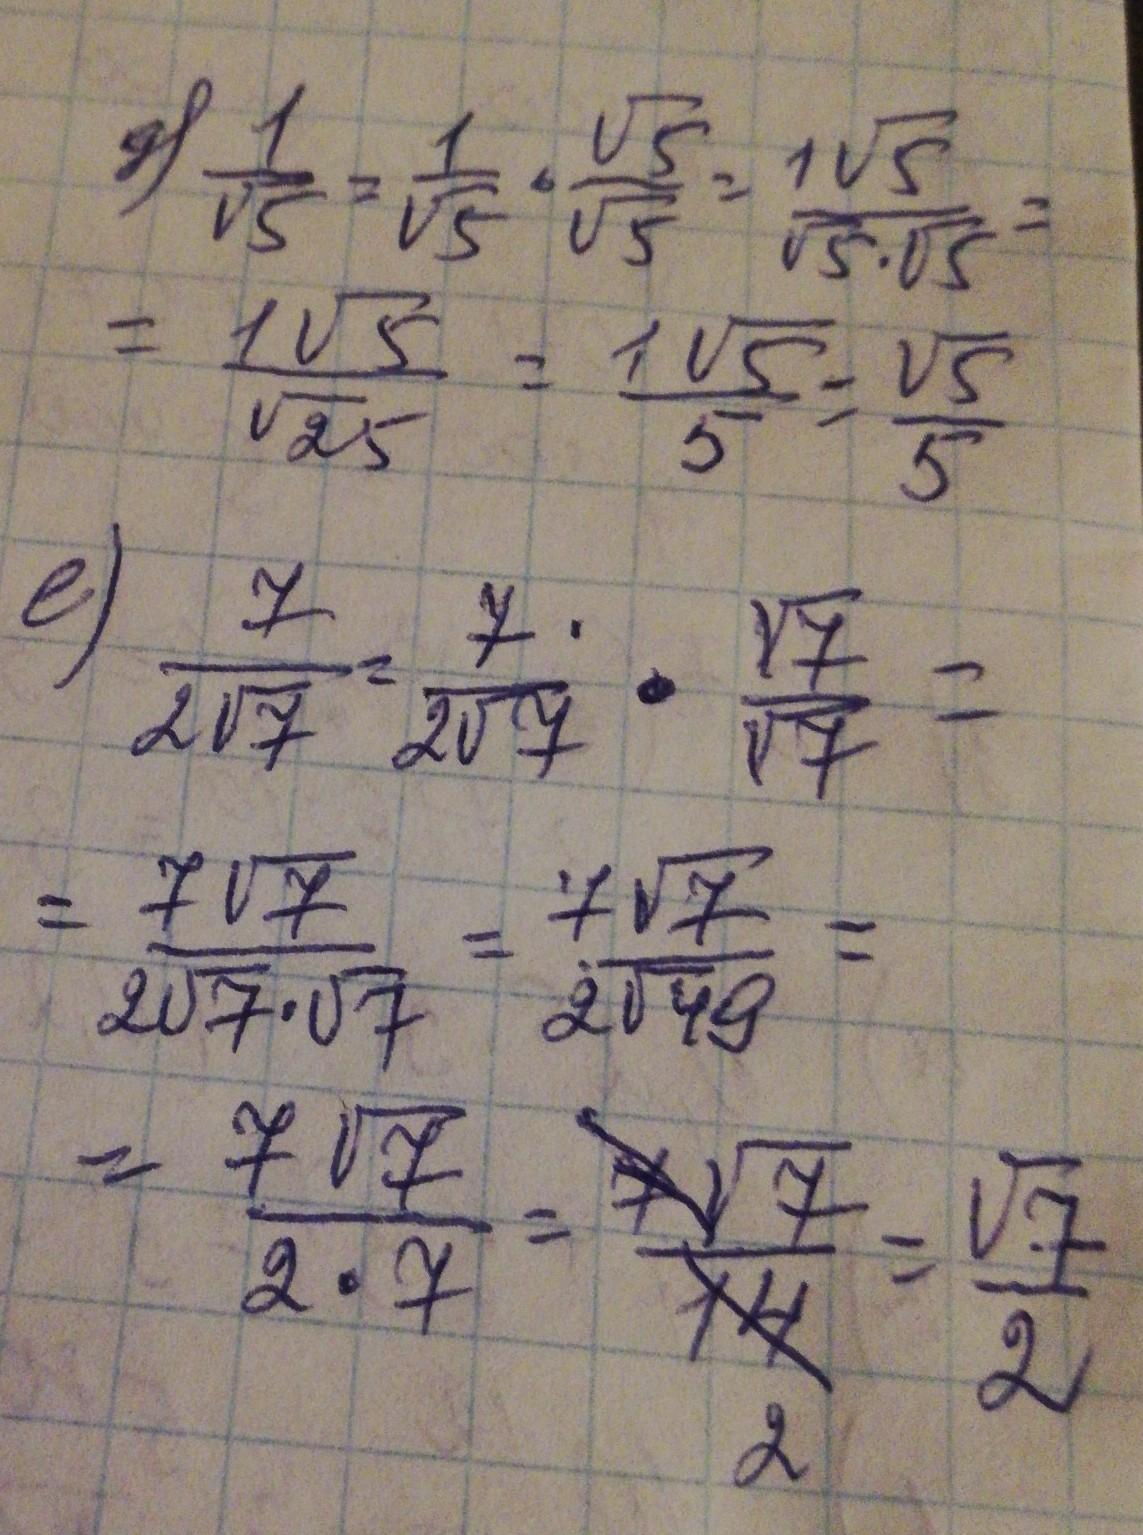 д) 1/√5 = 1/√5 · √5/√5 = 1√5/(√5·√5) =
= 1√5/√25 = 1√5/5 = √5/5
е) 7/(2√7) = 7/(2√7) · √7/√7 =
= 7√7/(2√7·√7) = 7√7/(2√49) =
= 7√7/(2·7) = 7√7/14 = √7/2
2